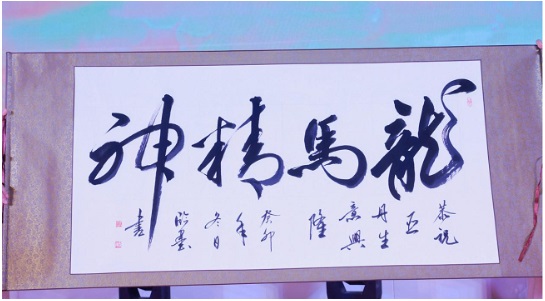 龍馬精神
恭祝
亚
丹生
意興
隆
癸卯
年
冬日
墨
書